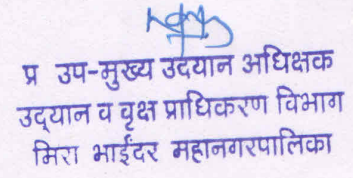 प्र उप-मुख्य उदयान अधिक्षक
उद्यान व वृक्ष प्राधिकरण विभाग
मिरा भाईंदर महानगरपालिका